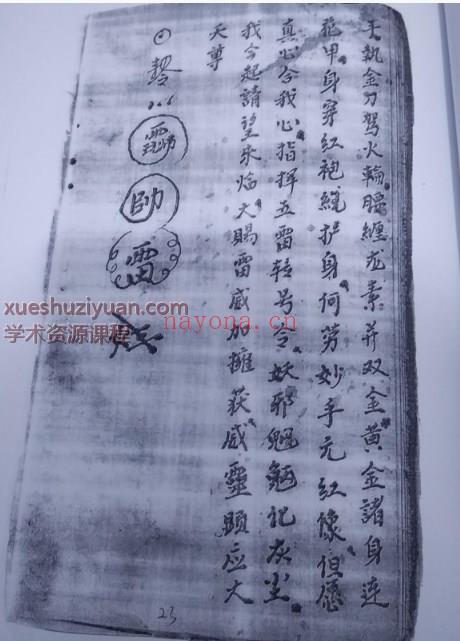 手执金刀驾火輪腰纏龙素并双金黄金諸身連
花甲身穿紅袍綉护身何劳妙手元紅像但愿
真心合我心指揮五雷转号令妖邪魍魎化灰尘
我今起請望来临大賜雷威加擁获威靈顕应大
天尊
帥
雷
23
xueshuziyuan.com
学术资源课程
nayona.cn